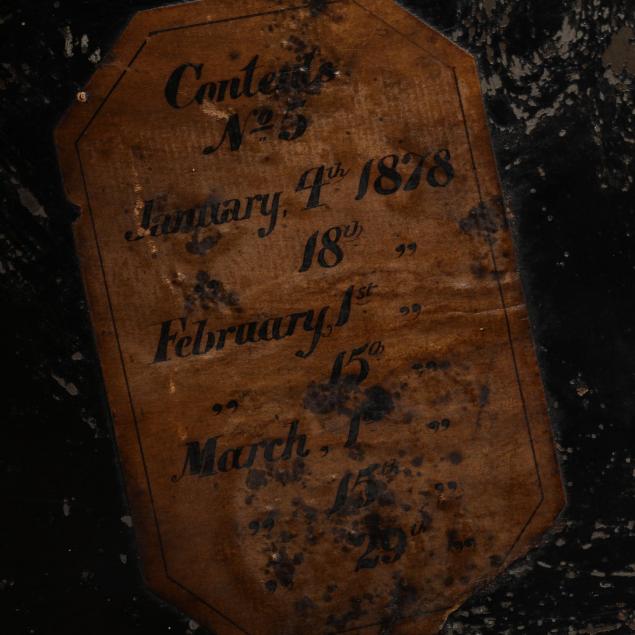 Contents
Nº 5
January, 4th 1878
18th „
February, 1st „
„ 15th „
March, 1st „
„ 15th „
„ 29th „